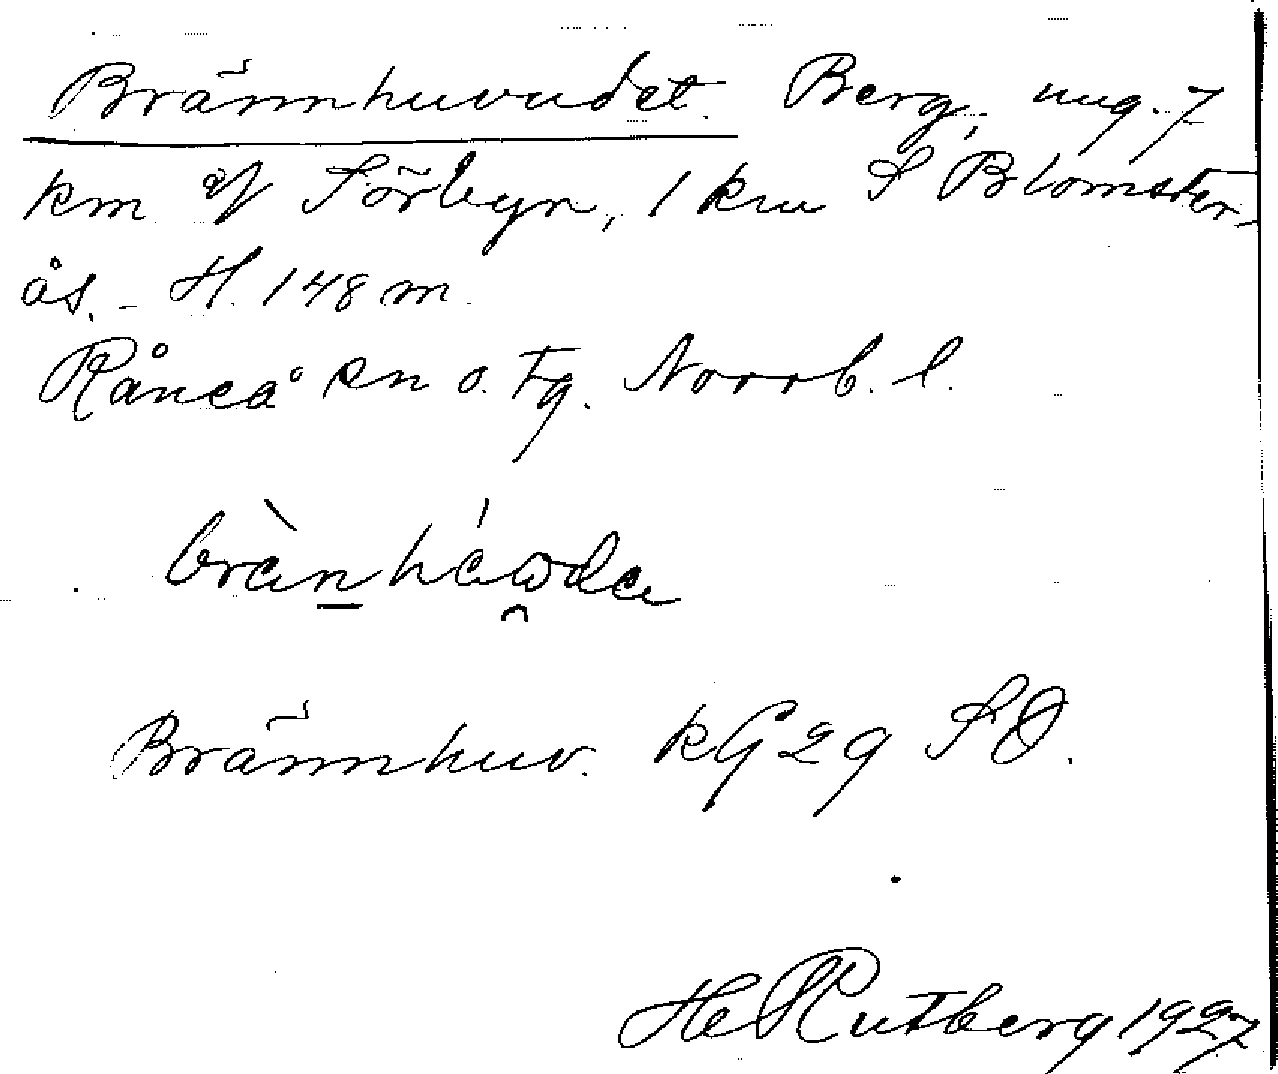 Brännhuvudet. Berg, ung. 7
km V Sörbyn, 1 km S Blomster-
ås. - H. 148 m.
Råneå sn o. tg. Norrb. l.
brànháwda
Brännhuv. kG29 SO.
He Rutberg 1927